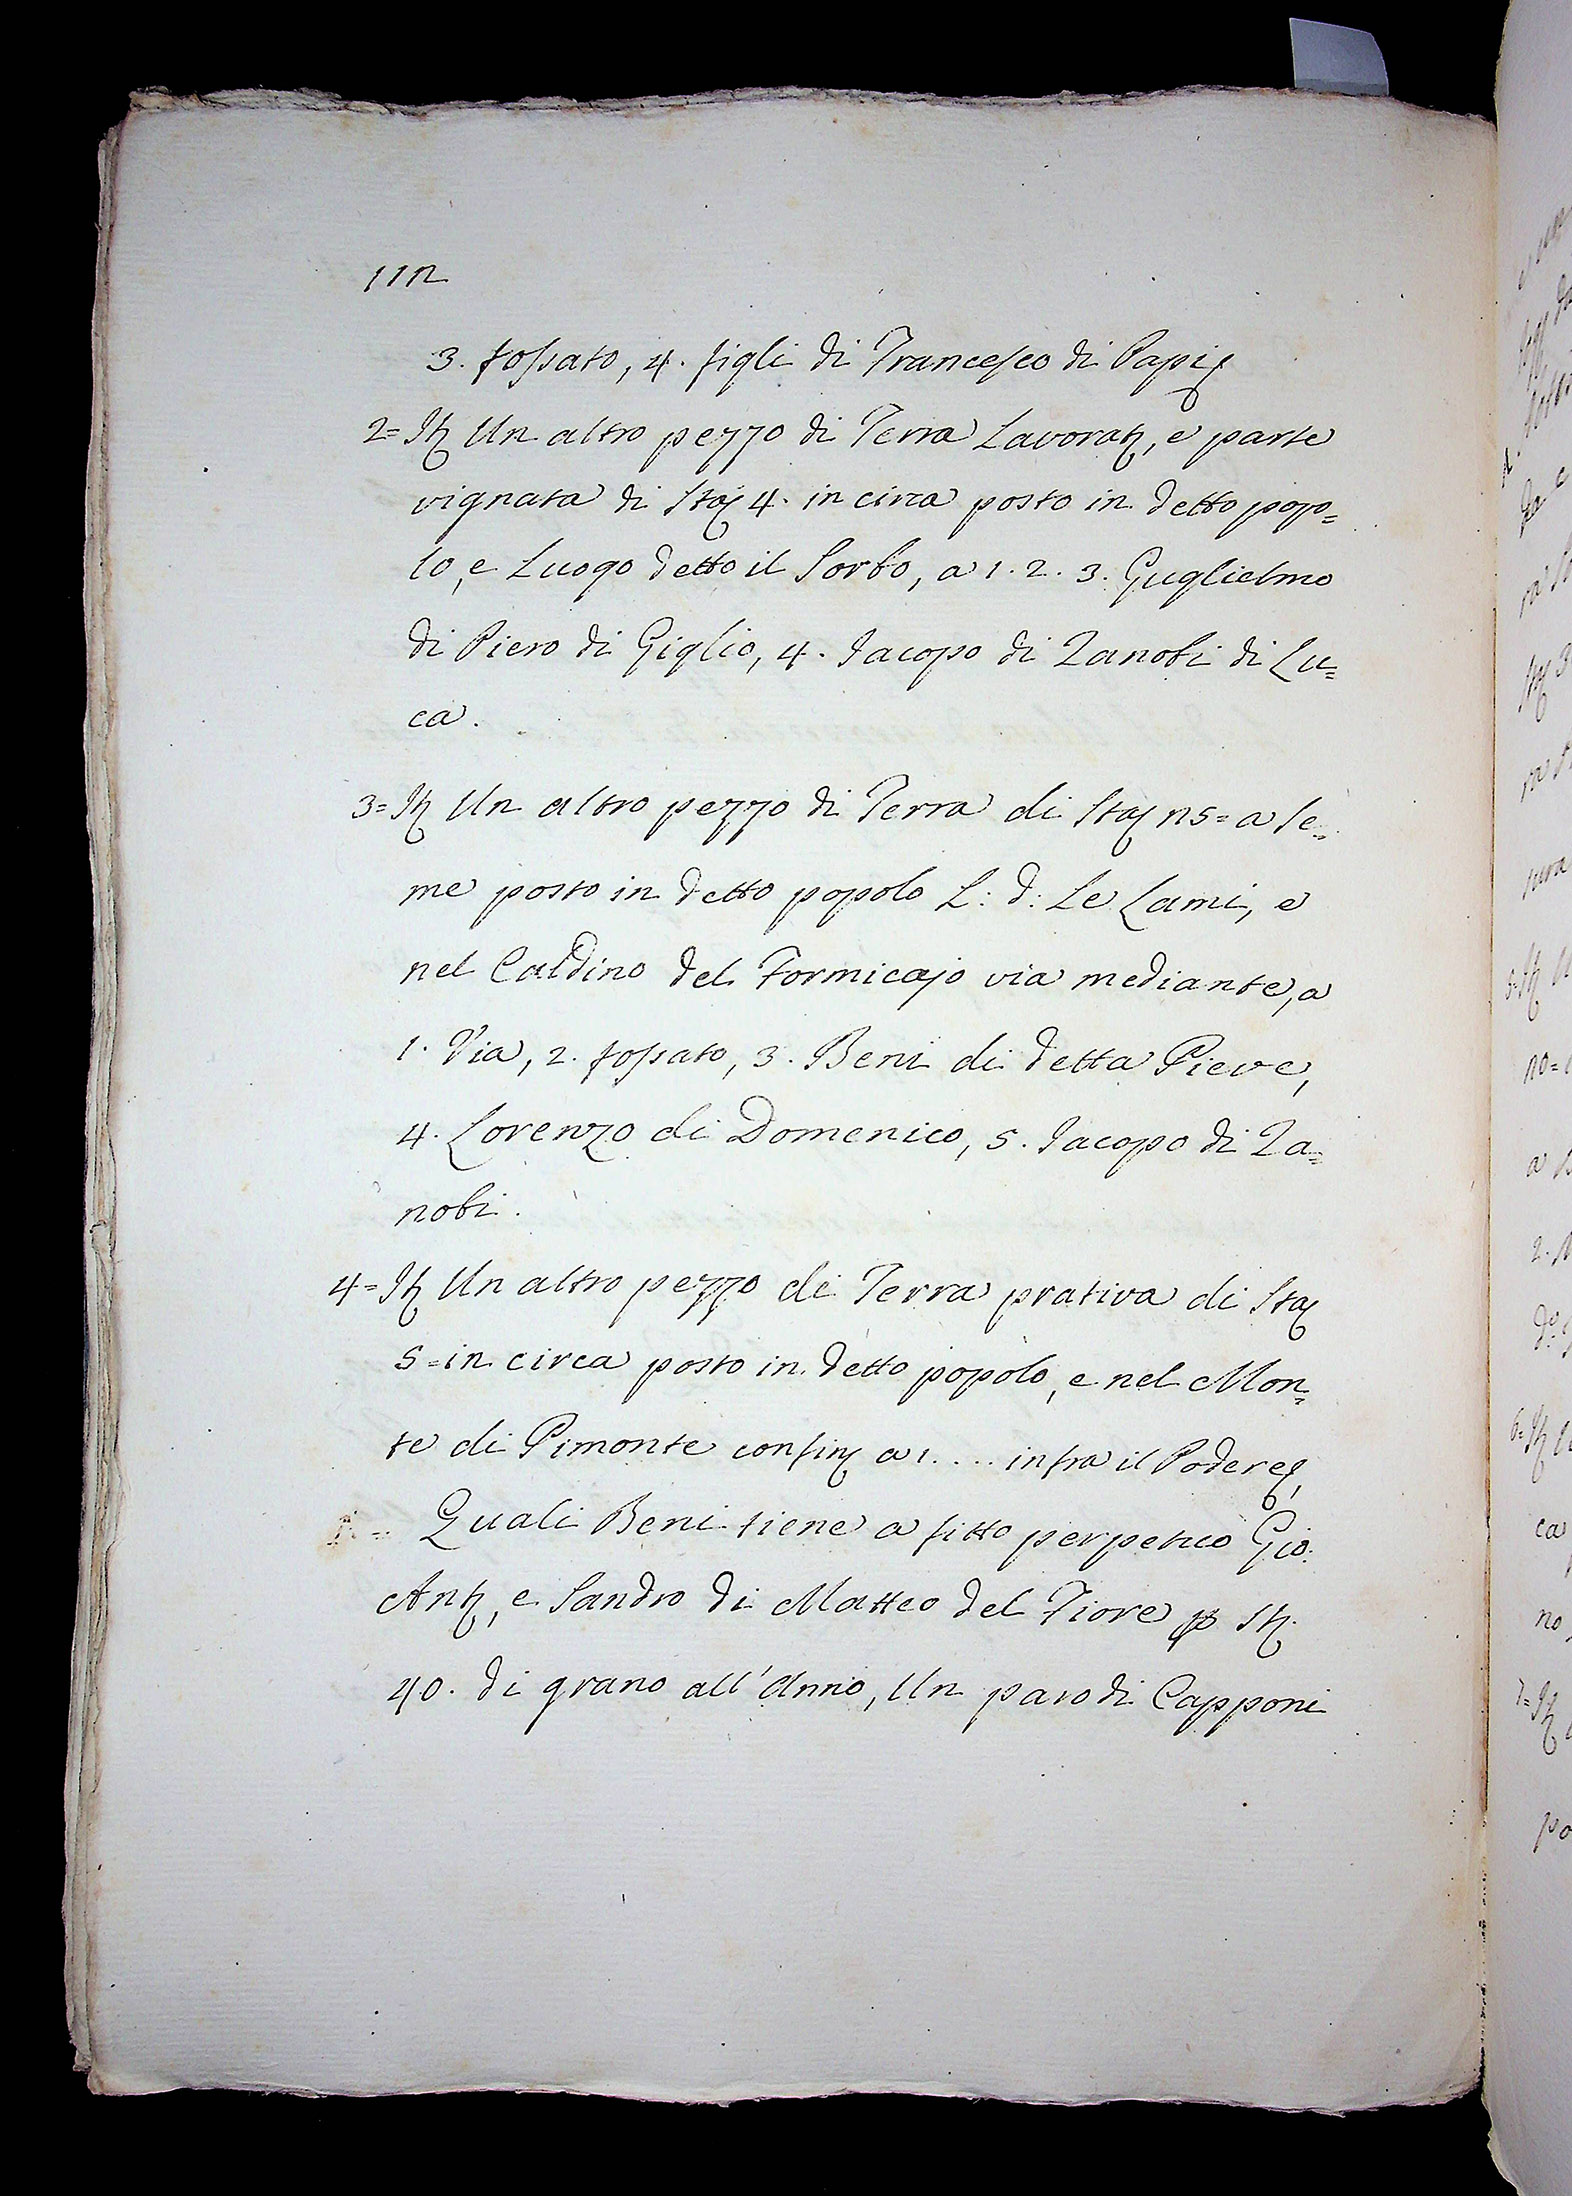 112
3. fossato, 4. figli di Francesco di Papi
2= It Un altro pezzo di Terra Lavorat, e parte
vignata di Staj 4. in circa posto in detto popo=
lo, e Luogo detto il Sorbo, a 1. 2. 3. Guglielmo
di Piero di Giglio, 4. Jacopo di Zanobi di Lu=
ca.
3= It Un altro pezzo di Terra di Staj 25= a Se=
me posto in detto popolo L: d: Le Lami, e
nel Caldino del Formicajo via mediante, a
1. Via, 2. fossato, 3. Beni di detta Pieve,
4. Lorenzo di Domenico, 5. Jacopo di Za=
nobi.
4= It Un altro pezzo di Terra prativa di Staj
5= in circa posto in detto popolo, e nel Mon=
te di Pimonte confin a 1.... infra il Podere
Quali Beni tiene a fitto perpetuo Gio:
Ant, e Sandro di Matteo del Fiore p St.
40. di grano all'Anno, Un paro di Capponi